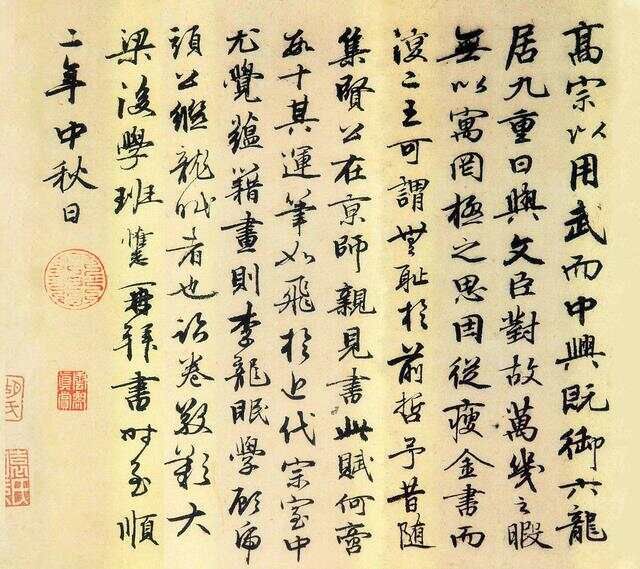 髙宗以用武而中興既御六龍
居九重日與文臣對故萬幾之暇
無以寓罔極之思因從瘦金書而
復二王可謂無耻於前哲予昔隨
集賢公在京師親見書此賦何啻
數十其運筆如飛於近代宗室中
尤覺蘊籍畫則李龍眠學顧虎
頭公繼龍眠者也卷敬歎大
梁後學班惟志再拜書時至順
二年中秋日